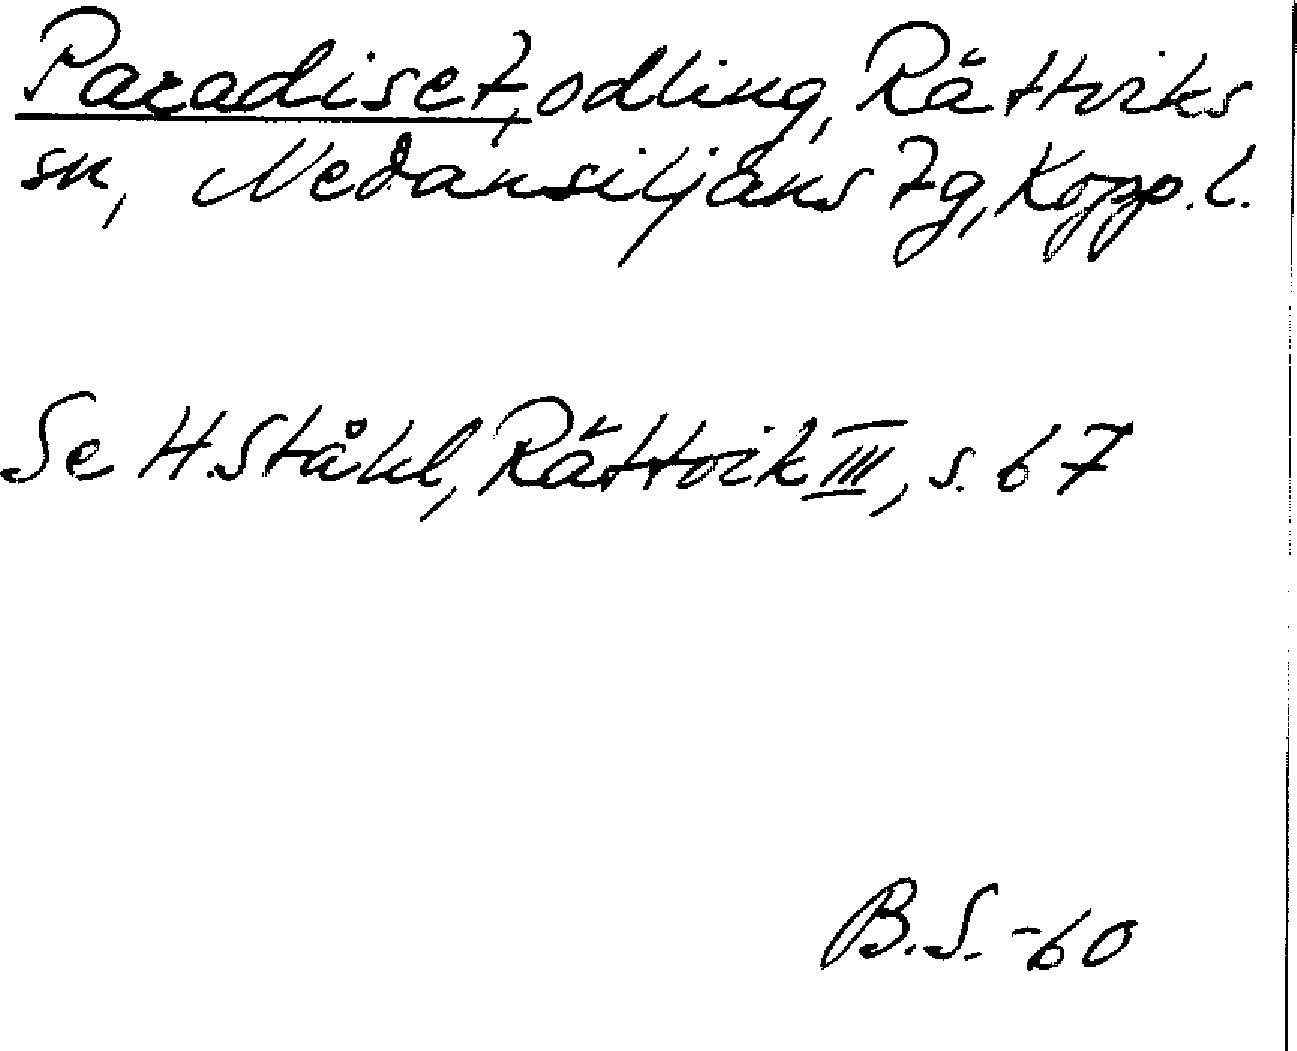 Paradiset, odling, Rättviks
sn, Nedansiljans tg, Kopp.l.
Se H.Ståhl, Rättvik III, s. 67
B.S. -60